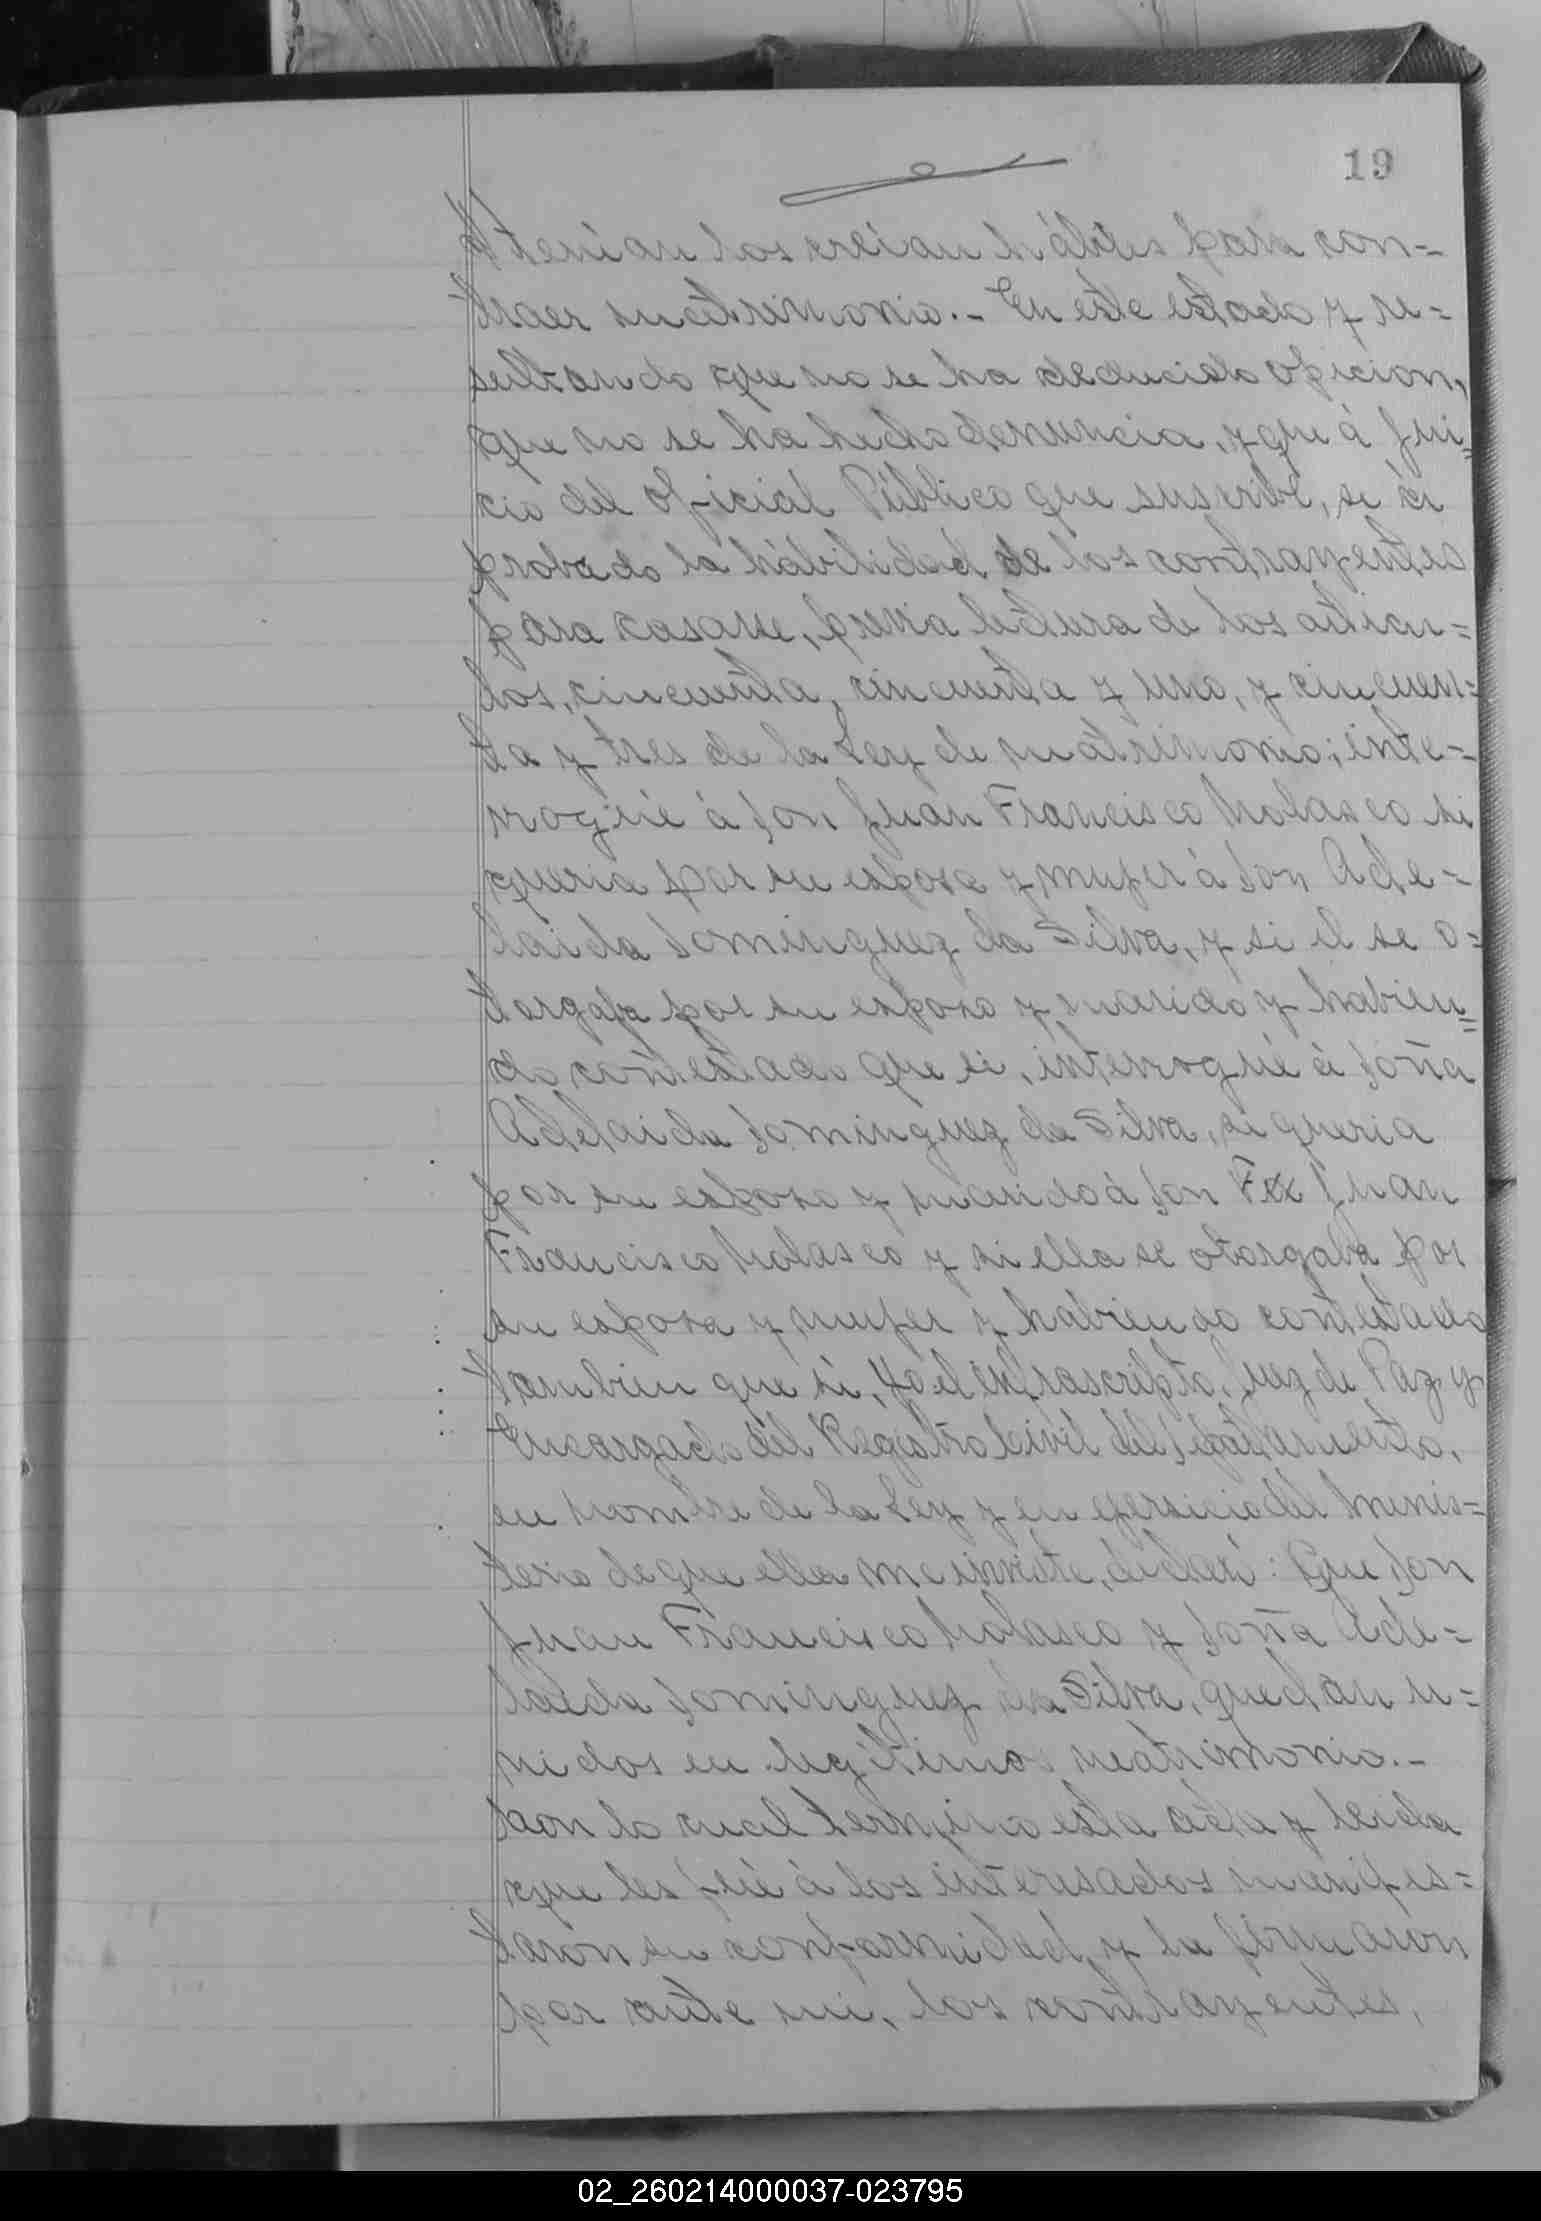 19
tenían los creían hábiles para con=
traer matrimonio.- En este estado y re=
sultando que no se ha deducido opicion,
que no se ha hecho denuncia, y que á jui=
cio del oficial Público que suscribe, se á
probado la habilidad de los contrayentes
para casarse, previa lectura de los articu=
los, cincuenta, cincuenta y uno, y cincuen=
ta y tres de la Ley de matrimonio; inte=
rrogué á Don Juan Francisco Nolasco si
queria por su esposa y mujer á Don Ade=
laida Dominguez da Silva, y si el se o=
torgaba por su esposo y marido y habien=
do contestado que si, interrogué á Doña
Adelaida Dominguez da Silva, si queria
por su esposo y marido á Don Juan
Francisco Nolasco y si ella se otorgaba por
su esposa y mujer y habiendo contestado
tambien que si, Yo el infrascripto, Juez de Paz y
Encargado del Registro Civil del Departamento,
en nombre de la Ley y en ejersicio del minis=
terio de que ella me inviste, declaré: Que Don
Juan Francisco Nolasco y Doña Ade=
laida Dominguez da Silva, quedan u=
nidos en legítimo matrimonio.-
Con lo cual termino esta acta y leida
que les fué á los interesados manifes=
taron su conformidad, y la firmaron
por ante mi, los contrayentes,
02_260214000037-023795